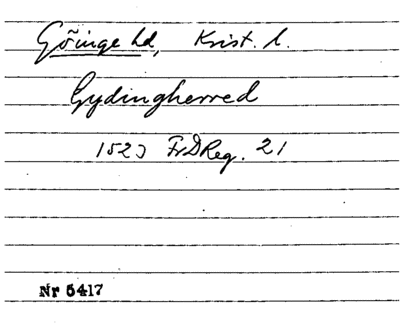 Göinge hd, Krist. l.
Gydingherred
1523 FrDReg. 21
Nr 5417